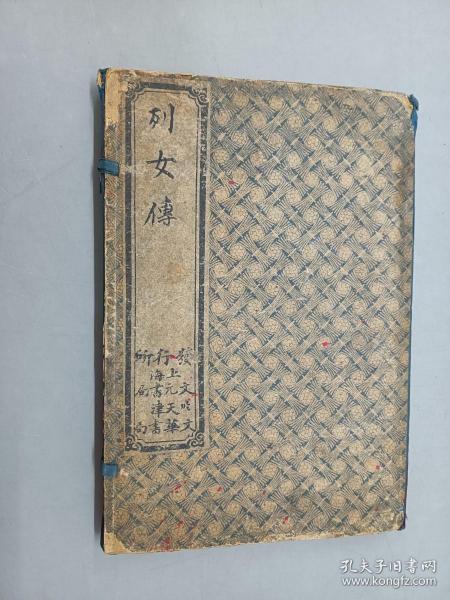 列女傳
發行所
上海
文元書局
天津
文華書局
孔夫子旧书网
www.kongfz.com